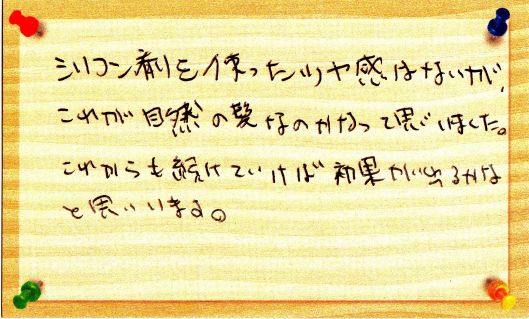 シリコン剤を使ったツヤ感はないが、
これが自然の髪なのかなって思いました。
これからも続けていけば効果が出るかな
と思います。